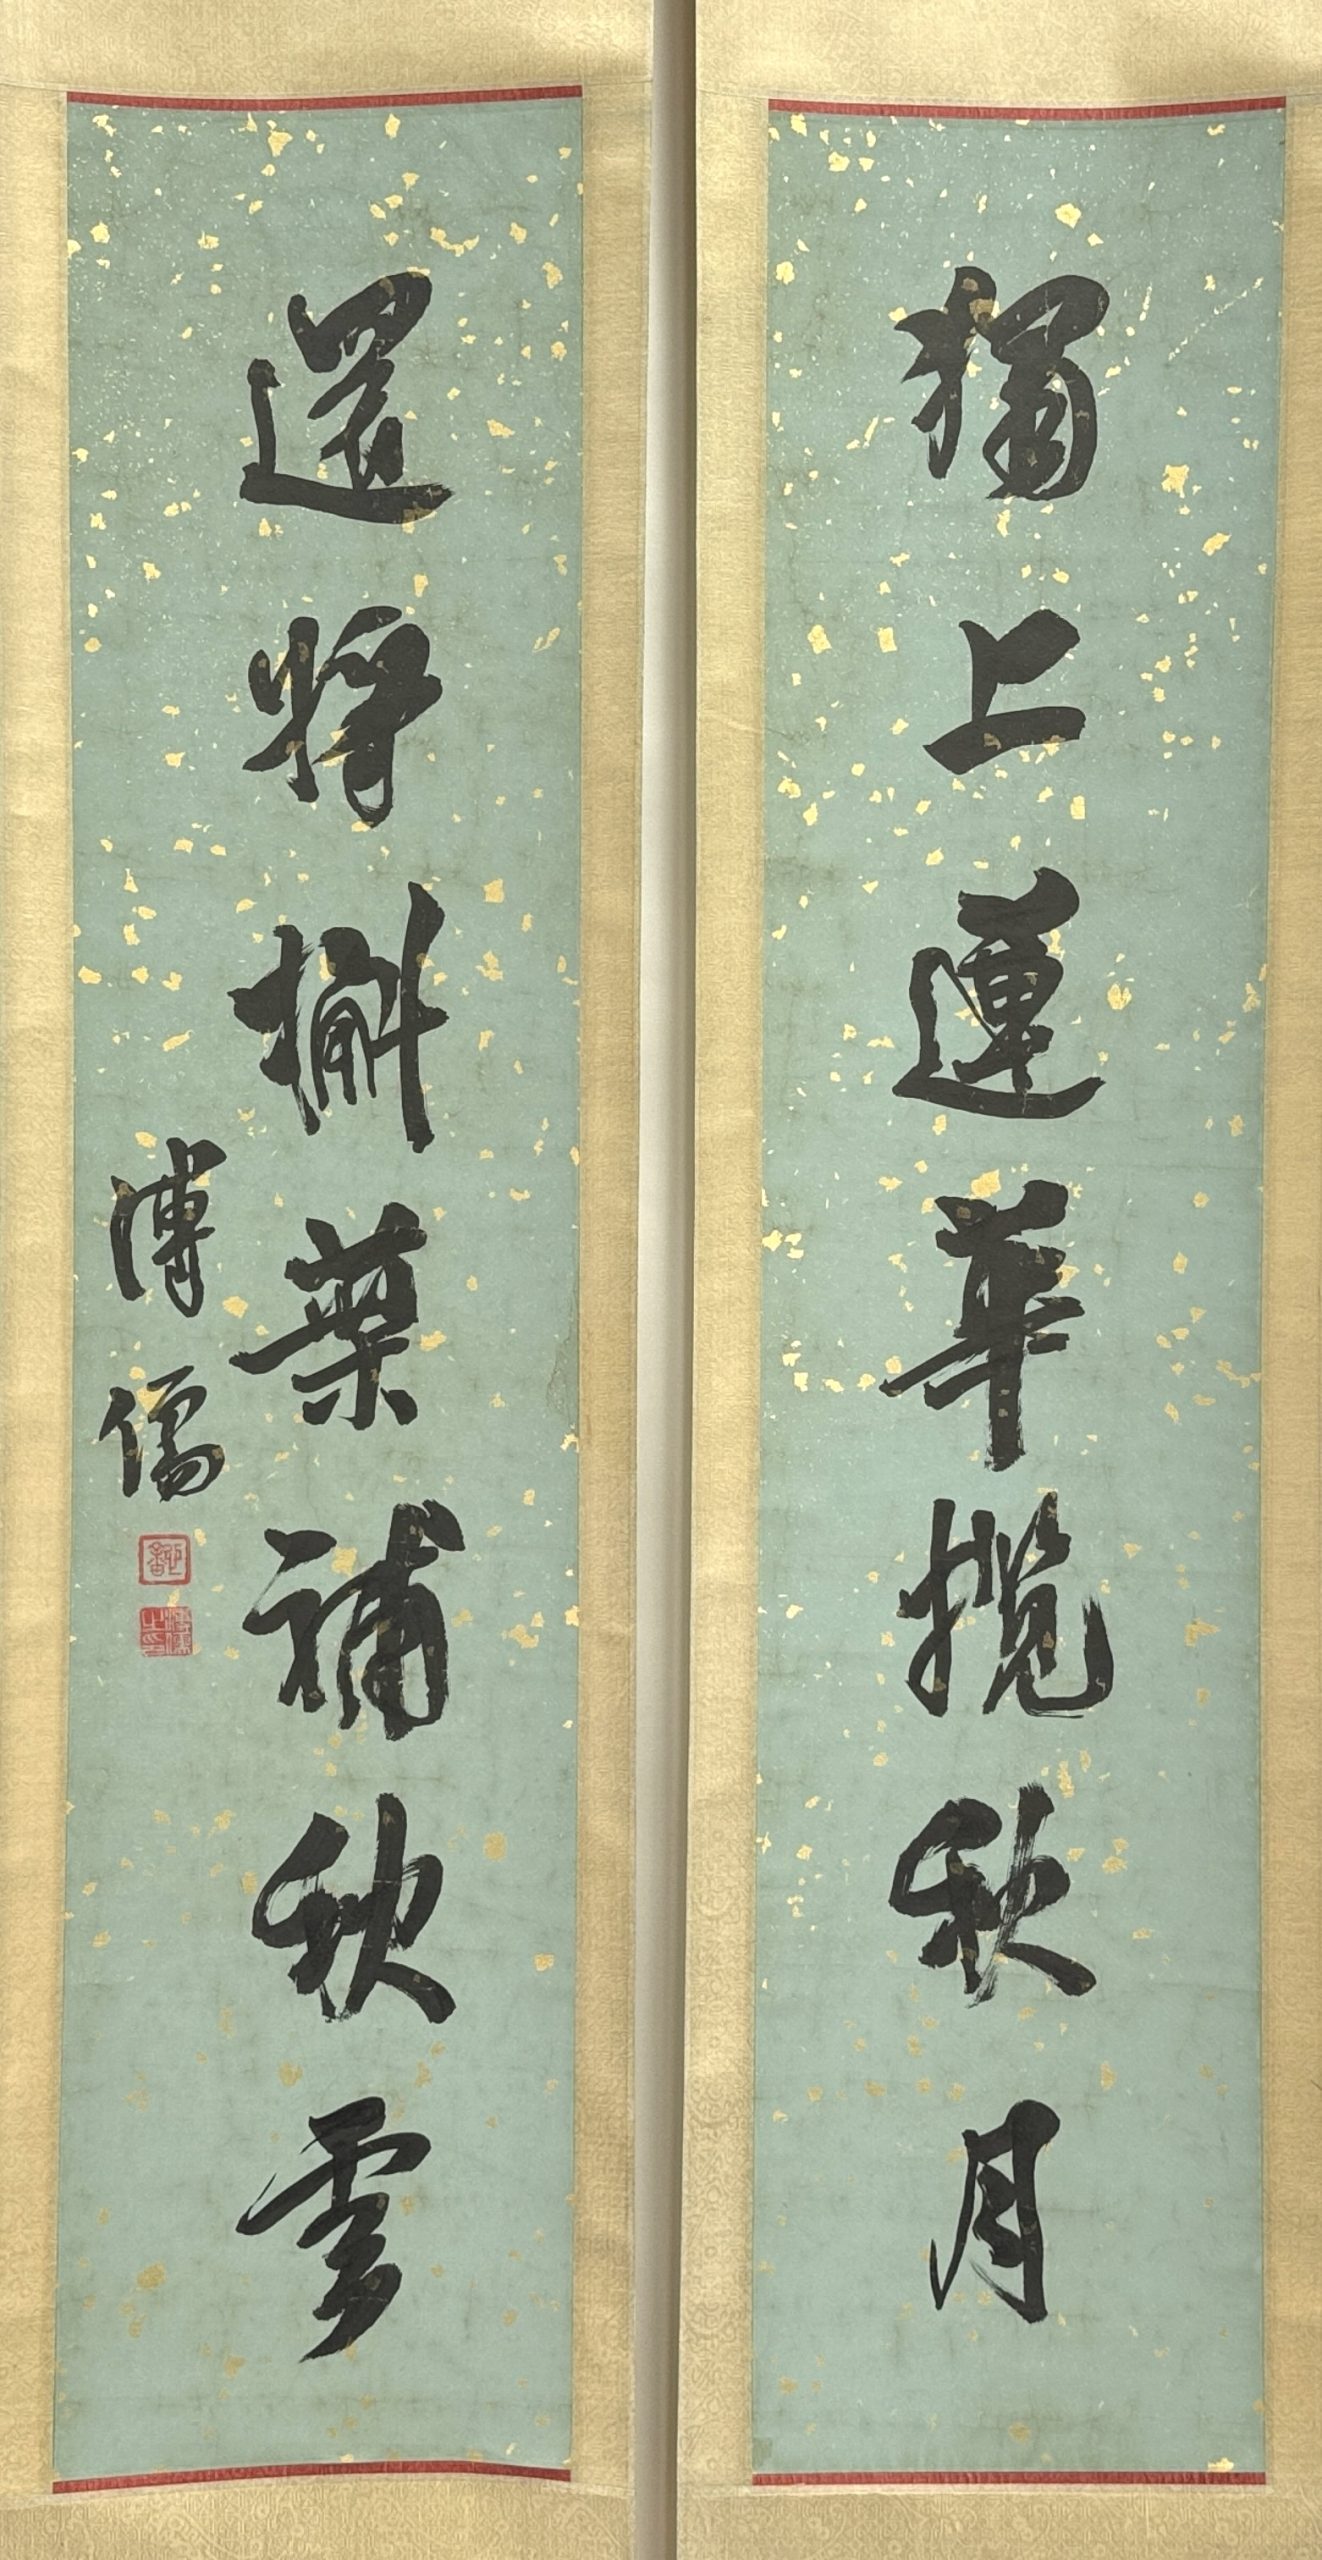 獨上蓮華攬秋月
還將槲葉補秋雲
溥儒
溥儒之印